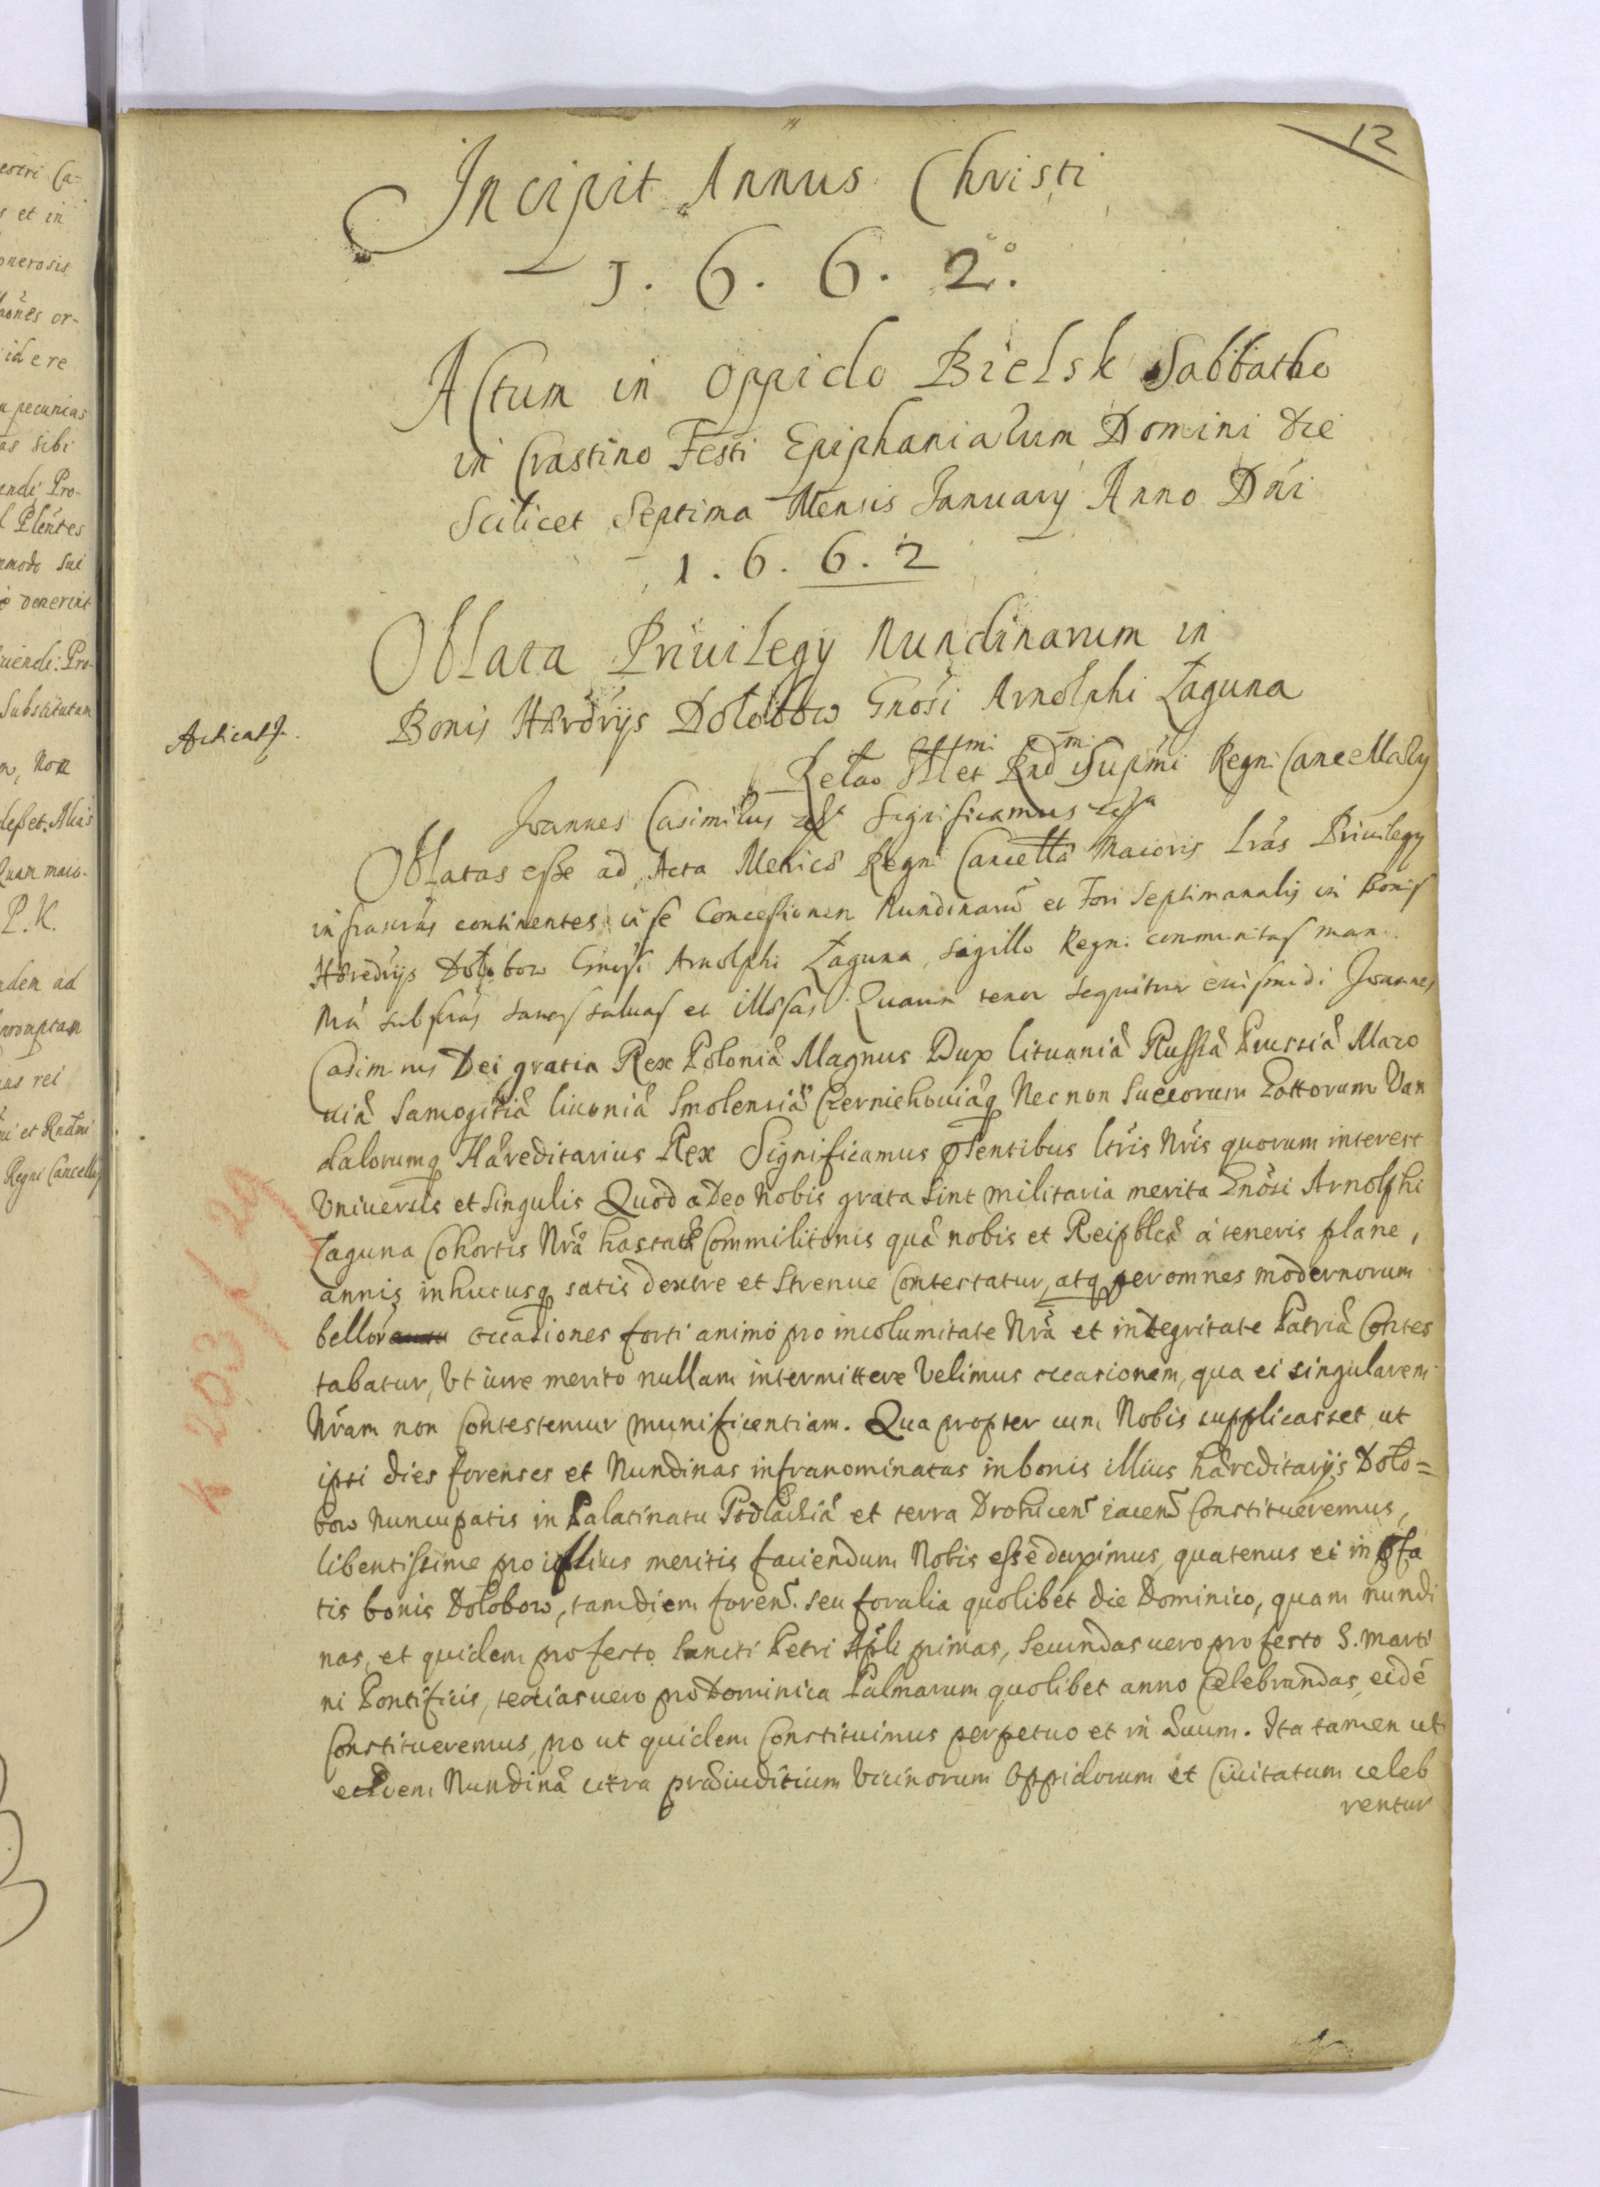 12
Incipit Annus Christi
1. 6. 6. 2.
Actum in Oppido Bielsk Sabbatho
in Crastino Festi Epiphaniarum Domini die
Scilicet Septima Mensis January Anno Dni
1. 6. 6. 2
Oblata Priuilegy Nundinarum in
Bonis Hærdrÿs Dołobow Gnosi Arnolphi Łaguna
Acticat
Relao Illmi et Rndmi Supmi Regni Cancellary
Joannes Casimirus Significamus
Oblatas esse ad Acta Metrices Regni Cancellæ Maioris Lras Priuilegy
infrascras continentes in se Concessionem Nundinarum et Fori Septimanalis in Bonis
Hæredrÿs Dołobow Gnosi Arnolphi Łaguna, sigillo Regni communitas manu
Nra subscras sanas saluas et illæsas Quarum tenor sequitur eiusmodi Joannes
Casimirus Dei gratia Rex Poloniæ Magnus Dux Lituaniæ Russiæ Prussiæ Mazo
uiæ Samogitiæ Liuoniæ Smolensiæ Czerniehouiæq Nec non Suecorum Gottorum Van
dalorumq Hæreditarius Rex Significamus pntibus ltris Nris quorum interest
Vniuersis et Singulis Quod adeo Nobis grata sint militaria merita Gnosi Arnolphi
Łaguna Cohortis Nræ hastatæ Commilitonis quæ nobis et Reipblcæ à teneris plane,
annis inhucusq satis dextre et Strenue Contestatur, atq per omnes modernorum
bellor occasiones forti animo pro incolumitate Nra et integritate Patriæ Contes
tabatur, Vt iure merito nullam intermittere Velimus occasionem, qua ei singularem
Nram non Contestemur munificentiam. Qua propter cum Nobis supplicasset ut
ipsi dies forenses et Nundinas infranominatas in bonis illius hæreditarÿs Doło=
bow nuncupatis in Palatinatu Podlachiæ et terra Drohicen iacen Constitueremus,
libentissime pro illius meritis faciendum Nobis esse duximus, quatenus ei in pfa
tis bonis Dołobow, tam diem foren. seu foralia quolibet die Dominico, quam nundi
nas, et quidem pro festo Sancti Petri Apli primas, Secundas uero pro festo S. Marti
ni Pontificis, tertias uero pro Dominica Palmarum quolibet anno Celebrandas, eidé
Constitueremus, pro ut quidem Constituimus perpetuo et in æuum. Ita tamen ut
eædem Nundinæ citra præiudicium Vicinorum Oppidorum et Ciuitatum celeb
rentur